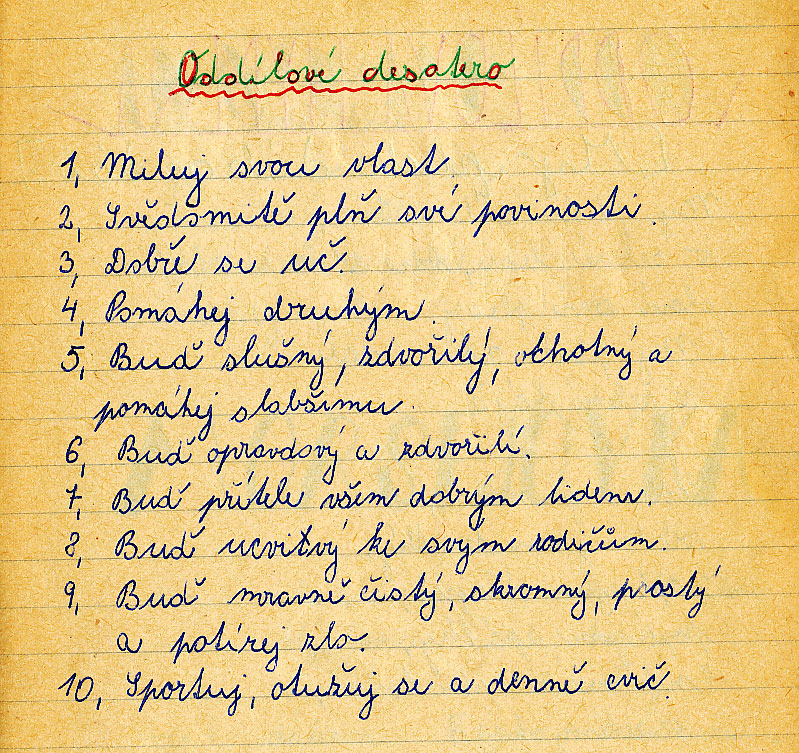 Oddílové desatero
1, Miluj svou vlast.
2, Svědomitě plň své povinosti.
3, Dobře se uč.
4, Pomáhej druhým.
5, Buď slušný, zdvořilý, ochotný a
pomáhej slabšímu.
6, Buď opravdový a zdvořilí.
7, Buď přítele všem dobrým lidem.
8, Buď uctivý ke svým rodičům.
9, Buď mravně čistý, skromný, prostý
a potírej zlo.
10, Sportuj, otužuj se a denně cvič.